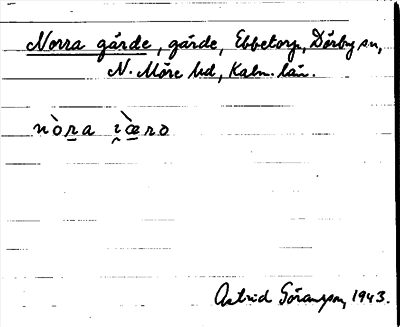 Norra gärde, gärde, Ebbetorp, Dörby sn,
N. Möre hd, Kalm. län.
nò̱ra i̯æ̀ro
Astrid Göransson, 1943.